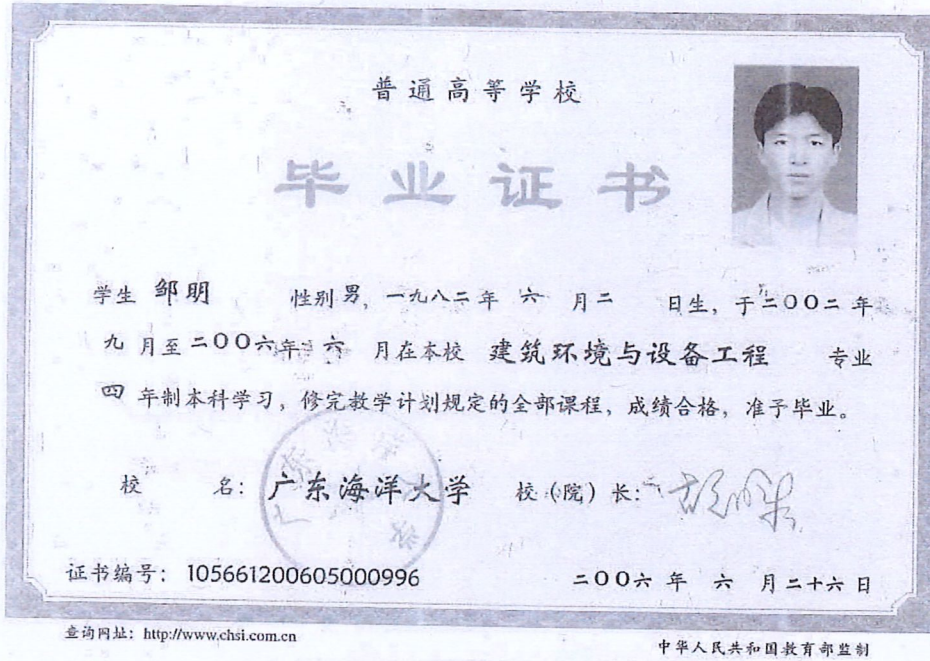 普通高等学校
毕业证书
学生 邹明 性别男，一九八二年 六 月二 日生，于二〇〇二年
九 月至二〇〇六年 六 月在本校 建筑环境与设备工程 专业
四 年制本科学习，修完教学计划规定的全部课程，成绩合格，准予毕业。
校 名：广东海洋大学 校（院）长：
证书编号：105661200605000996 二〇〇六年 六 月二十六日
查询网址：http://www.chsi.com.cn 中华人民共和国教育部监制